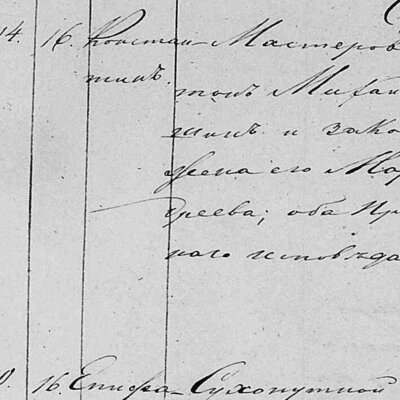 14. 16. Констан- Мастеров
тинъ.
тонъ Михаи
нинъ и зако
жена его Мар
дреева; оба Пр
наго исповѣда
16. Епифа- Сухопутной